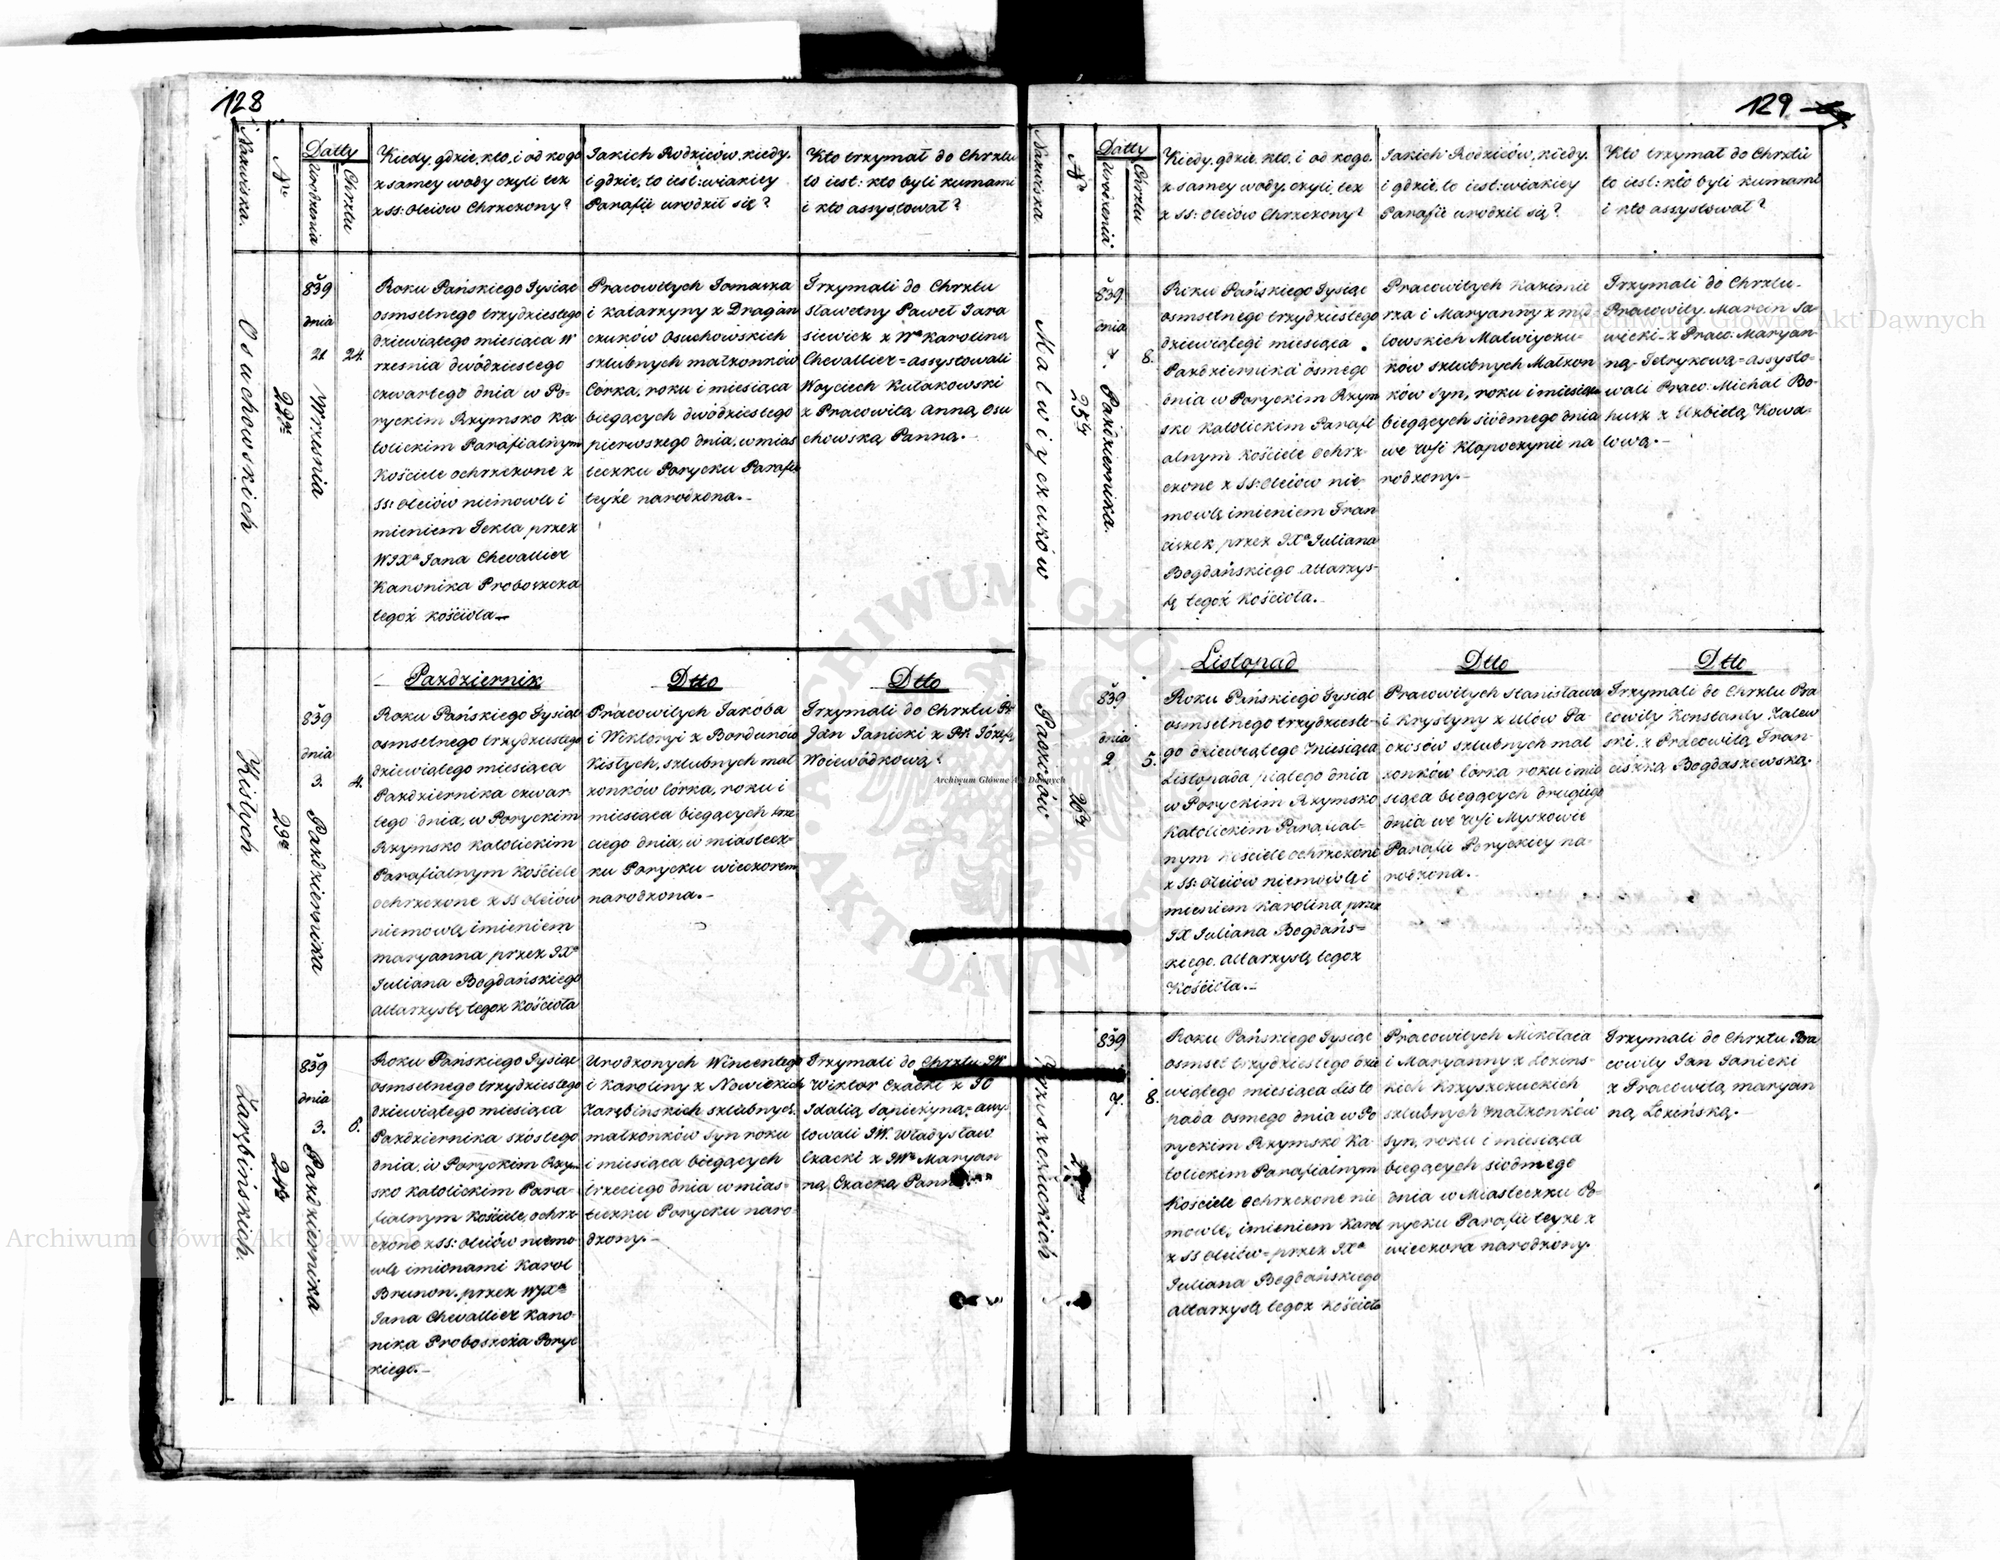 128
Nazwiska.
Nr
Datty
Urodzenia
Chrztu
Kiedy, gdzie, kto, i od kogo
z samey wody czyli też
z SS: Oleiów Chrzczony?
Jakich Rodziców, kiedy,
i gdzie, to iest: w iakiey
Parafii urodził się?
Kto trzymał do Chrztu
to iest: kto byli kumami
i kto assystował?
Osuchowskich
22
839
dnia
21
24.
Września
Roku Pańskiego Tysiąc
osmsetnego trzydziestego
dziewiątego miesiąca W
rześnia dwódziestego
czwartego dnia w Po-
ryckim Rzymsko Ka
tolickim Parafialnym
Kościele ochrzczone z
SS: Oleiów niemowlę i
mieniem Tekla przez
WJXa Jana Chevallier
Kanonika Proboszcza
tegoż Kościoła.—
Pracowitych Tomasza
i Katarzyny z Dragań
czuków Osuchowskich
szlubnych małżonków
Córka, roku i miesiąca
bieżących dwódziestego
pierwszego dnia, w mias
teczku Porycku Parafii
teyże narodzona.—
Trzymali do Chrztu
Sławetny Paweł Tara
siewicz z Wa Karoliną
Chevallier = assystowali
Woyciech Kułakowski
z Pracowitą Anną Osu
chowską Panną.—
Październik
Dtto
Dtto
Kistych
23
839
dnia
3.
4.
Października
Roku Pańskiego Tysiąc
osmsetnego trzydziestego
dziewiątego miesiąca
Października czwar
tego dnia, w Poryckim
Rzymsko Katolickim
Parafialnym Kościele
ochrzczone z SS Oleiów
niemowlę imieniem
Maryanna przez JXa
Juliana Bogdańskiego
Altarzystę tegoż Kościoła
Pracowitych Jakóba
i Wiktoryi z Bordunów
Kistych, szlubnych mał
żonków Córka, roku i
miesiąca bieżących trze
ciego dnia, w miastecz-
ku Porycku wieczorem
narodzona.—
Trzymali do Chrztu
Jan Janicki z Józefą
Woiewódkową.
Zarębińskich.
24
839
dnia
3.
6.
Października
Roku Pańskiego Tysiąc
osmsetnego trzydziestego
dziewiątego miesiąca
Października szóstego
dnia, w Poryckim Rzym
sko Katolickim Para-
fialnym Kościele, ochrz
czone z SS: Oleiów niemo
wlę imionami Karol
Brunon, przez WJXa
Jana Chevallier Kano
nika Proboszcza Poryc
kiego.—
Urodzonych Wincentego
i Karoliny z Nowickich
Zarębińskich szlubnych
małżonków syn roku
i miesiąca bieżących
trzeciego dnia w mias-
teczku Porycku naro
dzony.—
Trzymali do Chrztu JW
Wiktor Czacki z
Idalią = assys
towali JW. Władysław
Czacki z JWa Maryan
ną Czacką Panną.
129
Nazwiska
Nr
Datty
Urodzenia
Chrztu
Kiedy, gdzie, kto, i od kogo.
z samey wody, czyli też
z SS: Oleiów Chrzczony?
Jakich Rodziców, kiedy,
i gdzie, to iest: w iakiey
Parafii urodził się?
Kto trzymał do Chrztu
to iest: kto byli kumami
i kto assystował?
Malwiyczuków
25
839
dnia
7.
8.
Października.
Roku Pańskiego Tysiąc
osmsetnego trzydziestego
dziewiątego miesiąca
Października ósmego
dnia w Poryckim Rzym
sko Katolickim Parafi
alnym Kościele ochrz-
czone z SS: Oleiów nie
mowlę imieniem Fran
ciszek przez JXa Juliana
Bogdańskiego Altarzys-
tę tegoż Kościoła.—
Pracowitych Kazimie
rza i Maryanny z
Malwiyczu-
ków szlubnych Małżon
ków syn, roku i miesiąca
bieżących siódmego dnia
we Wsi Kłopoczynie na
rodzony.—
Trzymali do Chrztu.
Pracowity Marcin Sa
wicki z Praco: Maryan-
ną Petrykową = assysto-
wali Praco: Michał Bo-
husz z Elzbietą Kowa-
lową.—
Listopad
Dtto
Dtto
26
839
dnia
2
5.
Roku Pańskiego Tysiąc
osmsetnego trzydzieste-
go dziewiątego miesiąca
Listopada, piątego dnia
w Poryckim Rzymsko
Katolickim Parafial-
nym Kościele ochrzczone
z SS: Oleiów niemowlę i
mieniem Karolina przez
JX Juliana Bogdańs=
kiego Altarzystę tegoż
Kościoła.—
Pracowitych Stanisława
i Krystyny z Ulów
szlubnych mał
żonków Córka roku i mie
siąca bieżących drugiego
dnia we Wsi Myszowie
Parafii Poryckiey na-
rodzona.—
Trzymali do Chrztu Pra
cowity Konstanty Zalew
ski z Pracowitą Fran
ciszką Bogdaszewską.
Krzyszczuckich
27
839
7.
8.
Roku Pańskiego Tysiąc
osmset trzydziestego dzie
wiątego miesiąca Listo
pada osmego dnia w Po
ryckim Rzymsko Ka-
tolickim Parafialnym
Kościele Ochrzczone nie
mowlę, imieniem Karol
z SS Oleiów = przez JXa
Juliana Bogdańskiego
Altarzystę tegoż Kościoła
Pracowitych Mikołaia
i Maryanny z Łozińs-
kich Krzyszczuckich
szlubnych małżonków
syn, roku i miesiąca
bieżących siódmego
dnia w Miasteczku Po-
rycku Parafii teyże z
wieczora narodzony.
Trzymali do Chrztu Pra
cowity Jan Janicki
z Pracowitą Maryan
ną Łozińską.—
Archiwum Główne Akt Dawnych
Archiwum Główne Akt Dawnych
Archiwum Główne Akt Dawnych
ARCHIWUM GŁÓWNE AKT DAWNYCH